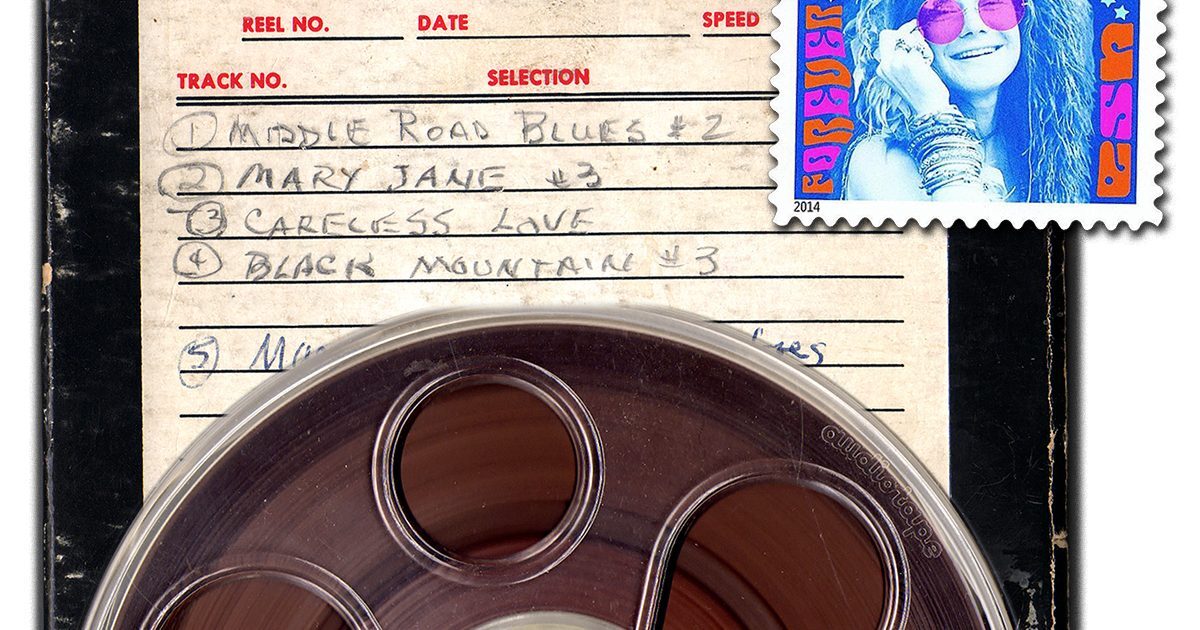 REEL NO. DATE SPEED
TRACK NO. SELECTION
① MIDDLE ROAD BLUES #2
② MARY JANE #3
③ CARELESS LOVE
④ BLACK MOUNTAIN #3
⑤
FOREVER
USA
2014
audiotape